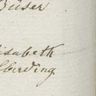 Büser
lisabeth
lberding